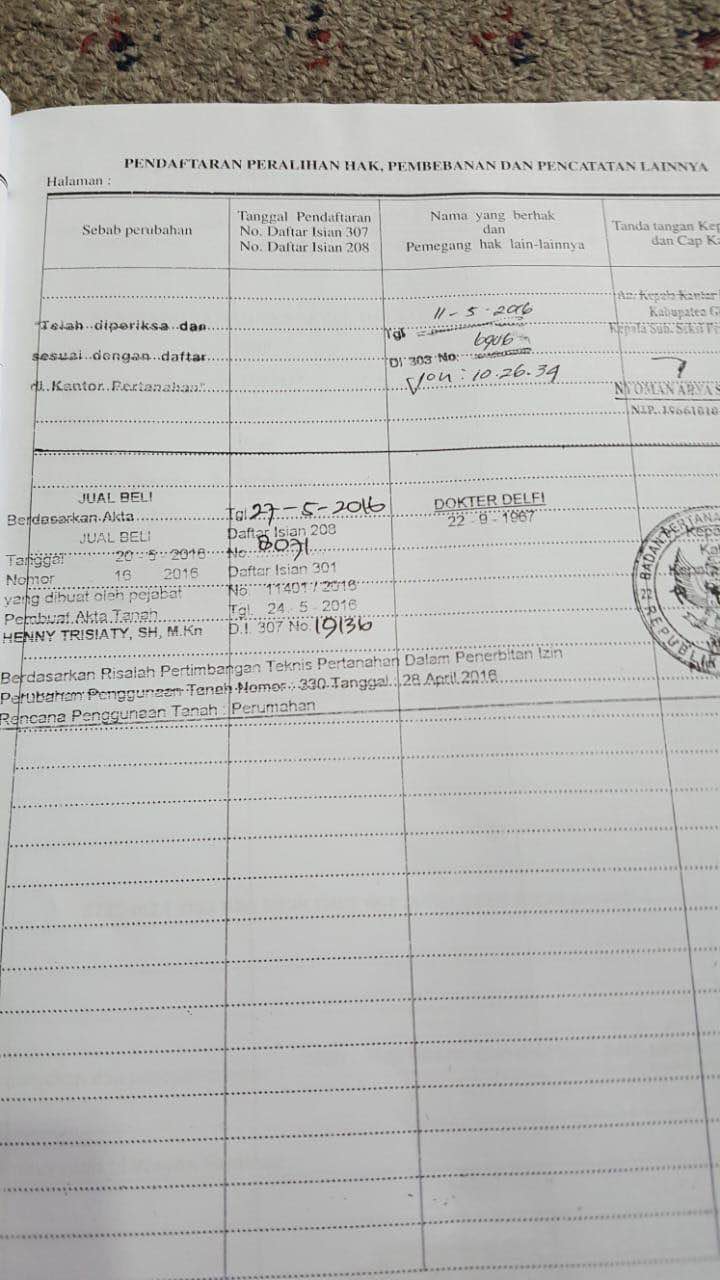 PENDAFTARAN PERALIHAN HAK, PEMBEBANAN DAN PENCATATAN LAINNYA
Halaman :
Sebab perubahan
Tanggal Pendaftaran
No. Daftar Isian 307
No. Daftar Isian 208
Nama yang berhak
dan
Pemegang hak lain-lainnya
Tanda tangan Kep
dan Cap Ka
"Telah diperiksa dan
sesuai dengan daftar
di Kantor Pertanahan"
Tgl 11-5-2016
DI 303 No.
Jon : 10.26.34
An. Kepala Kantor
Kabupaten G
Kepala Sub. Seksi
NYOMAN ARYA S
NIP. 19661010
JUAL BELI
Berdasarkan Akta
JUAL BELI
Tanggal 20 - 5 - 2016
Nomor 16 2016
yang dibuat oleh pejabat
Pembuat Akta Tanah
HENNY TRISIATY, SH, M.Kn
Tgl 27-5-2016
Daftar Isian 208
No. 8071
Daftar Isian 301
No. 11401 / 2016
Tgl. 24 - 5 - 2016
D.I. 307 No. 19136
DOKTER DELFI
22 - 9 - 1967
BADAN PERTANA
REPUBLI
Berdasarkan Risalah Pertimbangan Teknis Pertanahan Dalam Penerbitan Izin
Perubahan Penggunaan Tanah Nomor : 330 Tanggal : 28 April 2016
Rencana Penggunaan Tanah : Perumahan